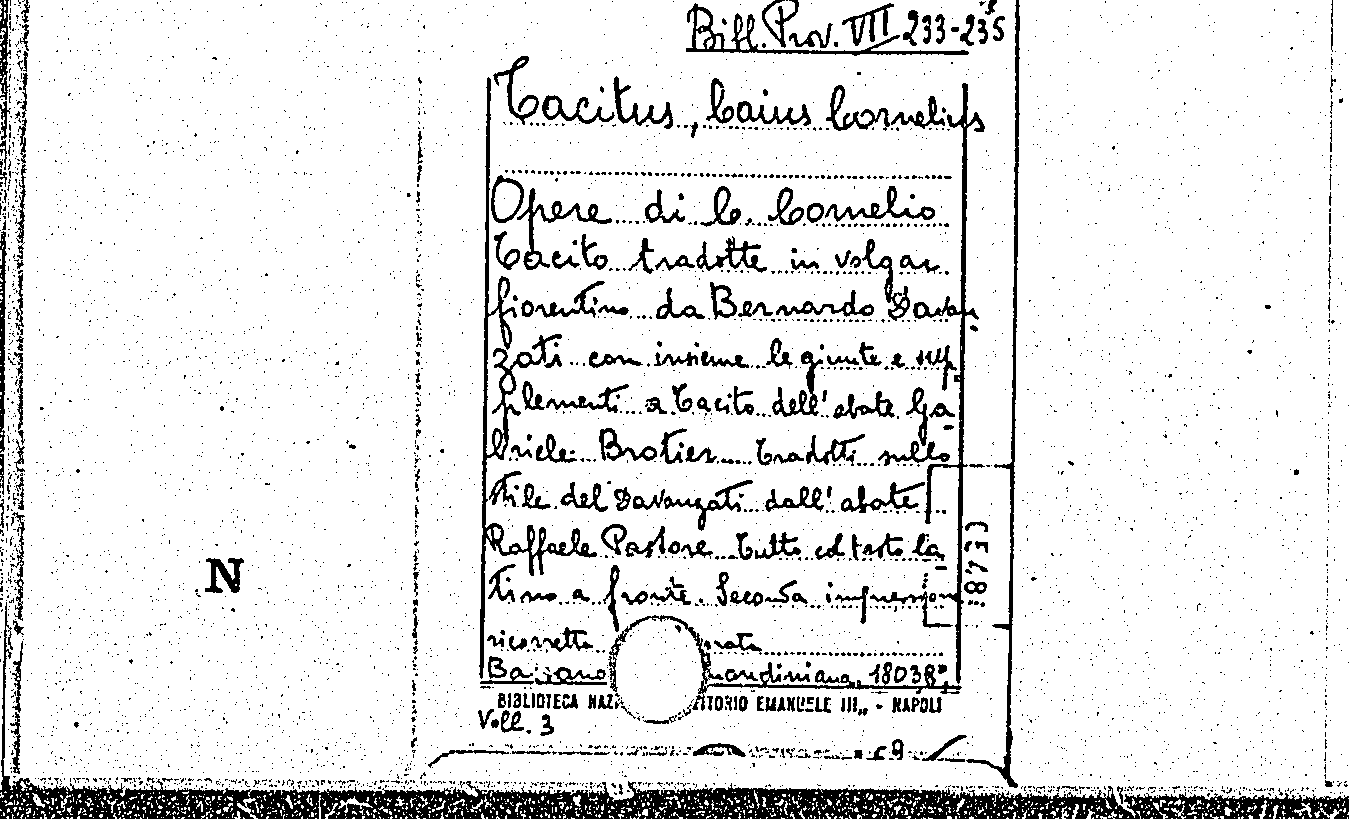 Bibl. Prov. VII 233-235
Tacitus, Caius Cornelius
Opere di C. Cornelio
Tacito tradotte in volgar
fiorentino da Bernardo Davan-
zati con insieme le giunte e sup-
plementi a Tacito dell'abate Ga-
briele Brotier tradotti sullo
stile del Davanzati dall'abate
Raffaele Pastore. Tutto col testo la-
tino a fronte. Seconda impressione
ricorretta rata
Bassano ondiniana, 1803, 8°,
BIBLIOTECA NAZ ITTORIO EMANUELE III„ - NAPOLI
Voll. 3
(5478)
N